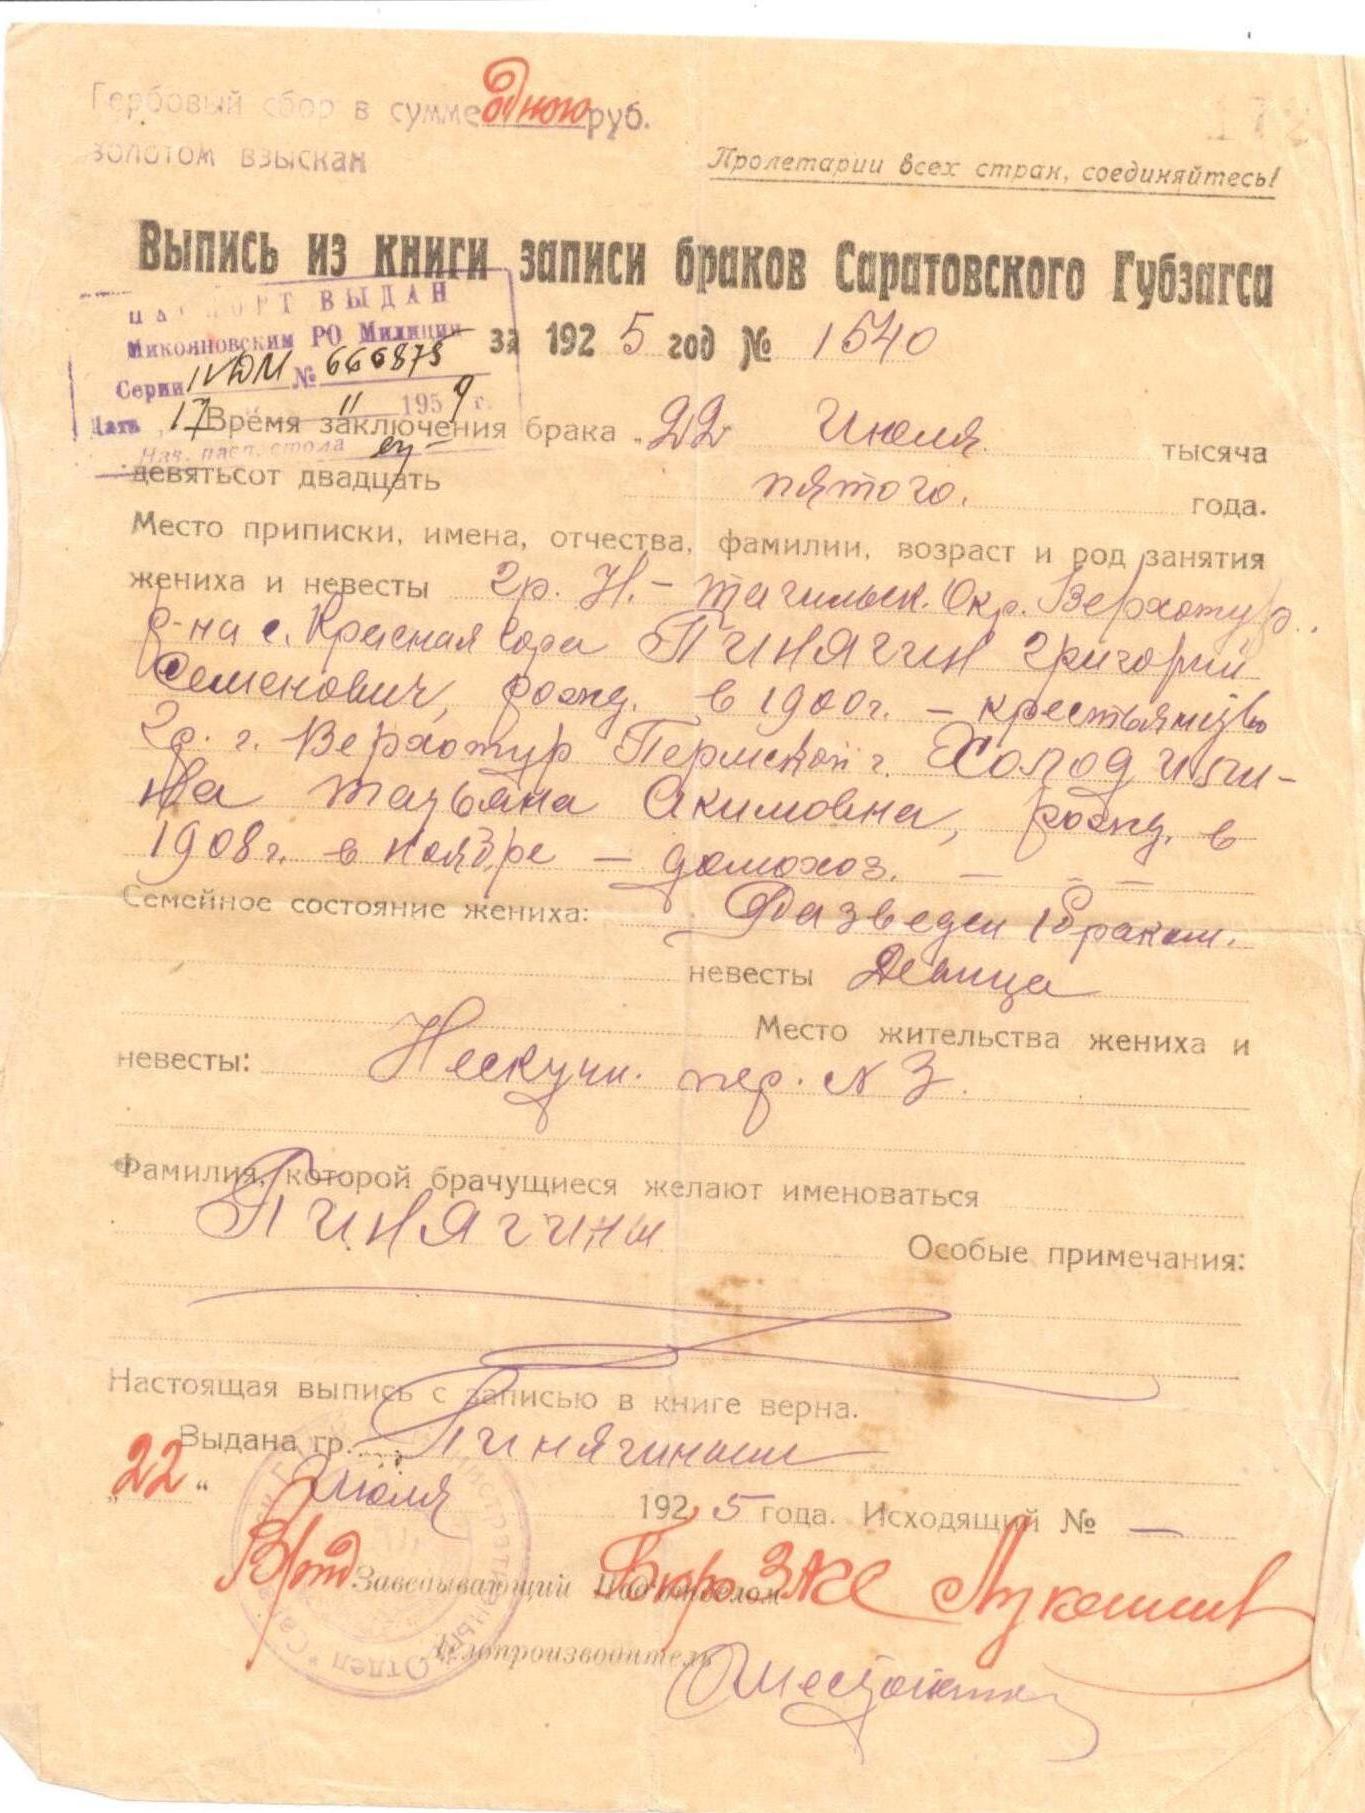 Гербовый сбор в сумме одною руб.
золотом взыскан
Пролетарии всех стран, соединяйтесь!
Выпись из книги записи браков Саратовского Губзагса
за 1925 год № 1540
ПАСПОРТ ВЫДАН
Микояновским РО Милиции
Серии IV ДМ № 666875
Дата 17 11 1959 г.
Нач. пасп. стола
Время заключения брака „22 Июля тысяча
девятьсот двадцать пятого. года.
Место приписки, имена, отчества, фамилии, возраст и род занятия
жениха и невесты гр. Н.-Тагильск. Окр. Верхотур.
р-на с. Красная Гора Пинягин Григорий
Семенович, рожд. в 1900 г. –
гр. г. Верхотур Пермской г.
на Татьяна Акимовна, рожд. в
1908 г. в ноябре – домохоз. –
Семейное состояние жениха: Разведен 1 браком.
невесты Девица
Место жительства жениха и
невесты: Нескучн. пер. № 3.
Фамилия, которой брачущиеся желают именоваться
Пинягины
Особые примечания:
Настоящая выпись с записью в книге верна.
Выдана гр. Пинягиным
„22“ Июля 1925 года. Исходящий № —
Врид Заведывающий Подотделом Бюро ЗАГС
Делопроизводитель